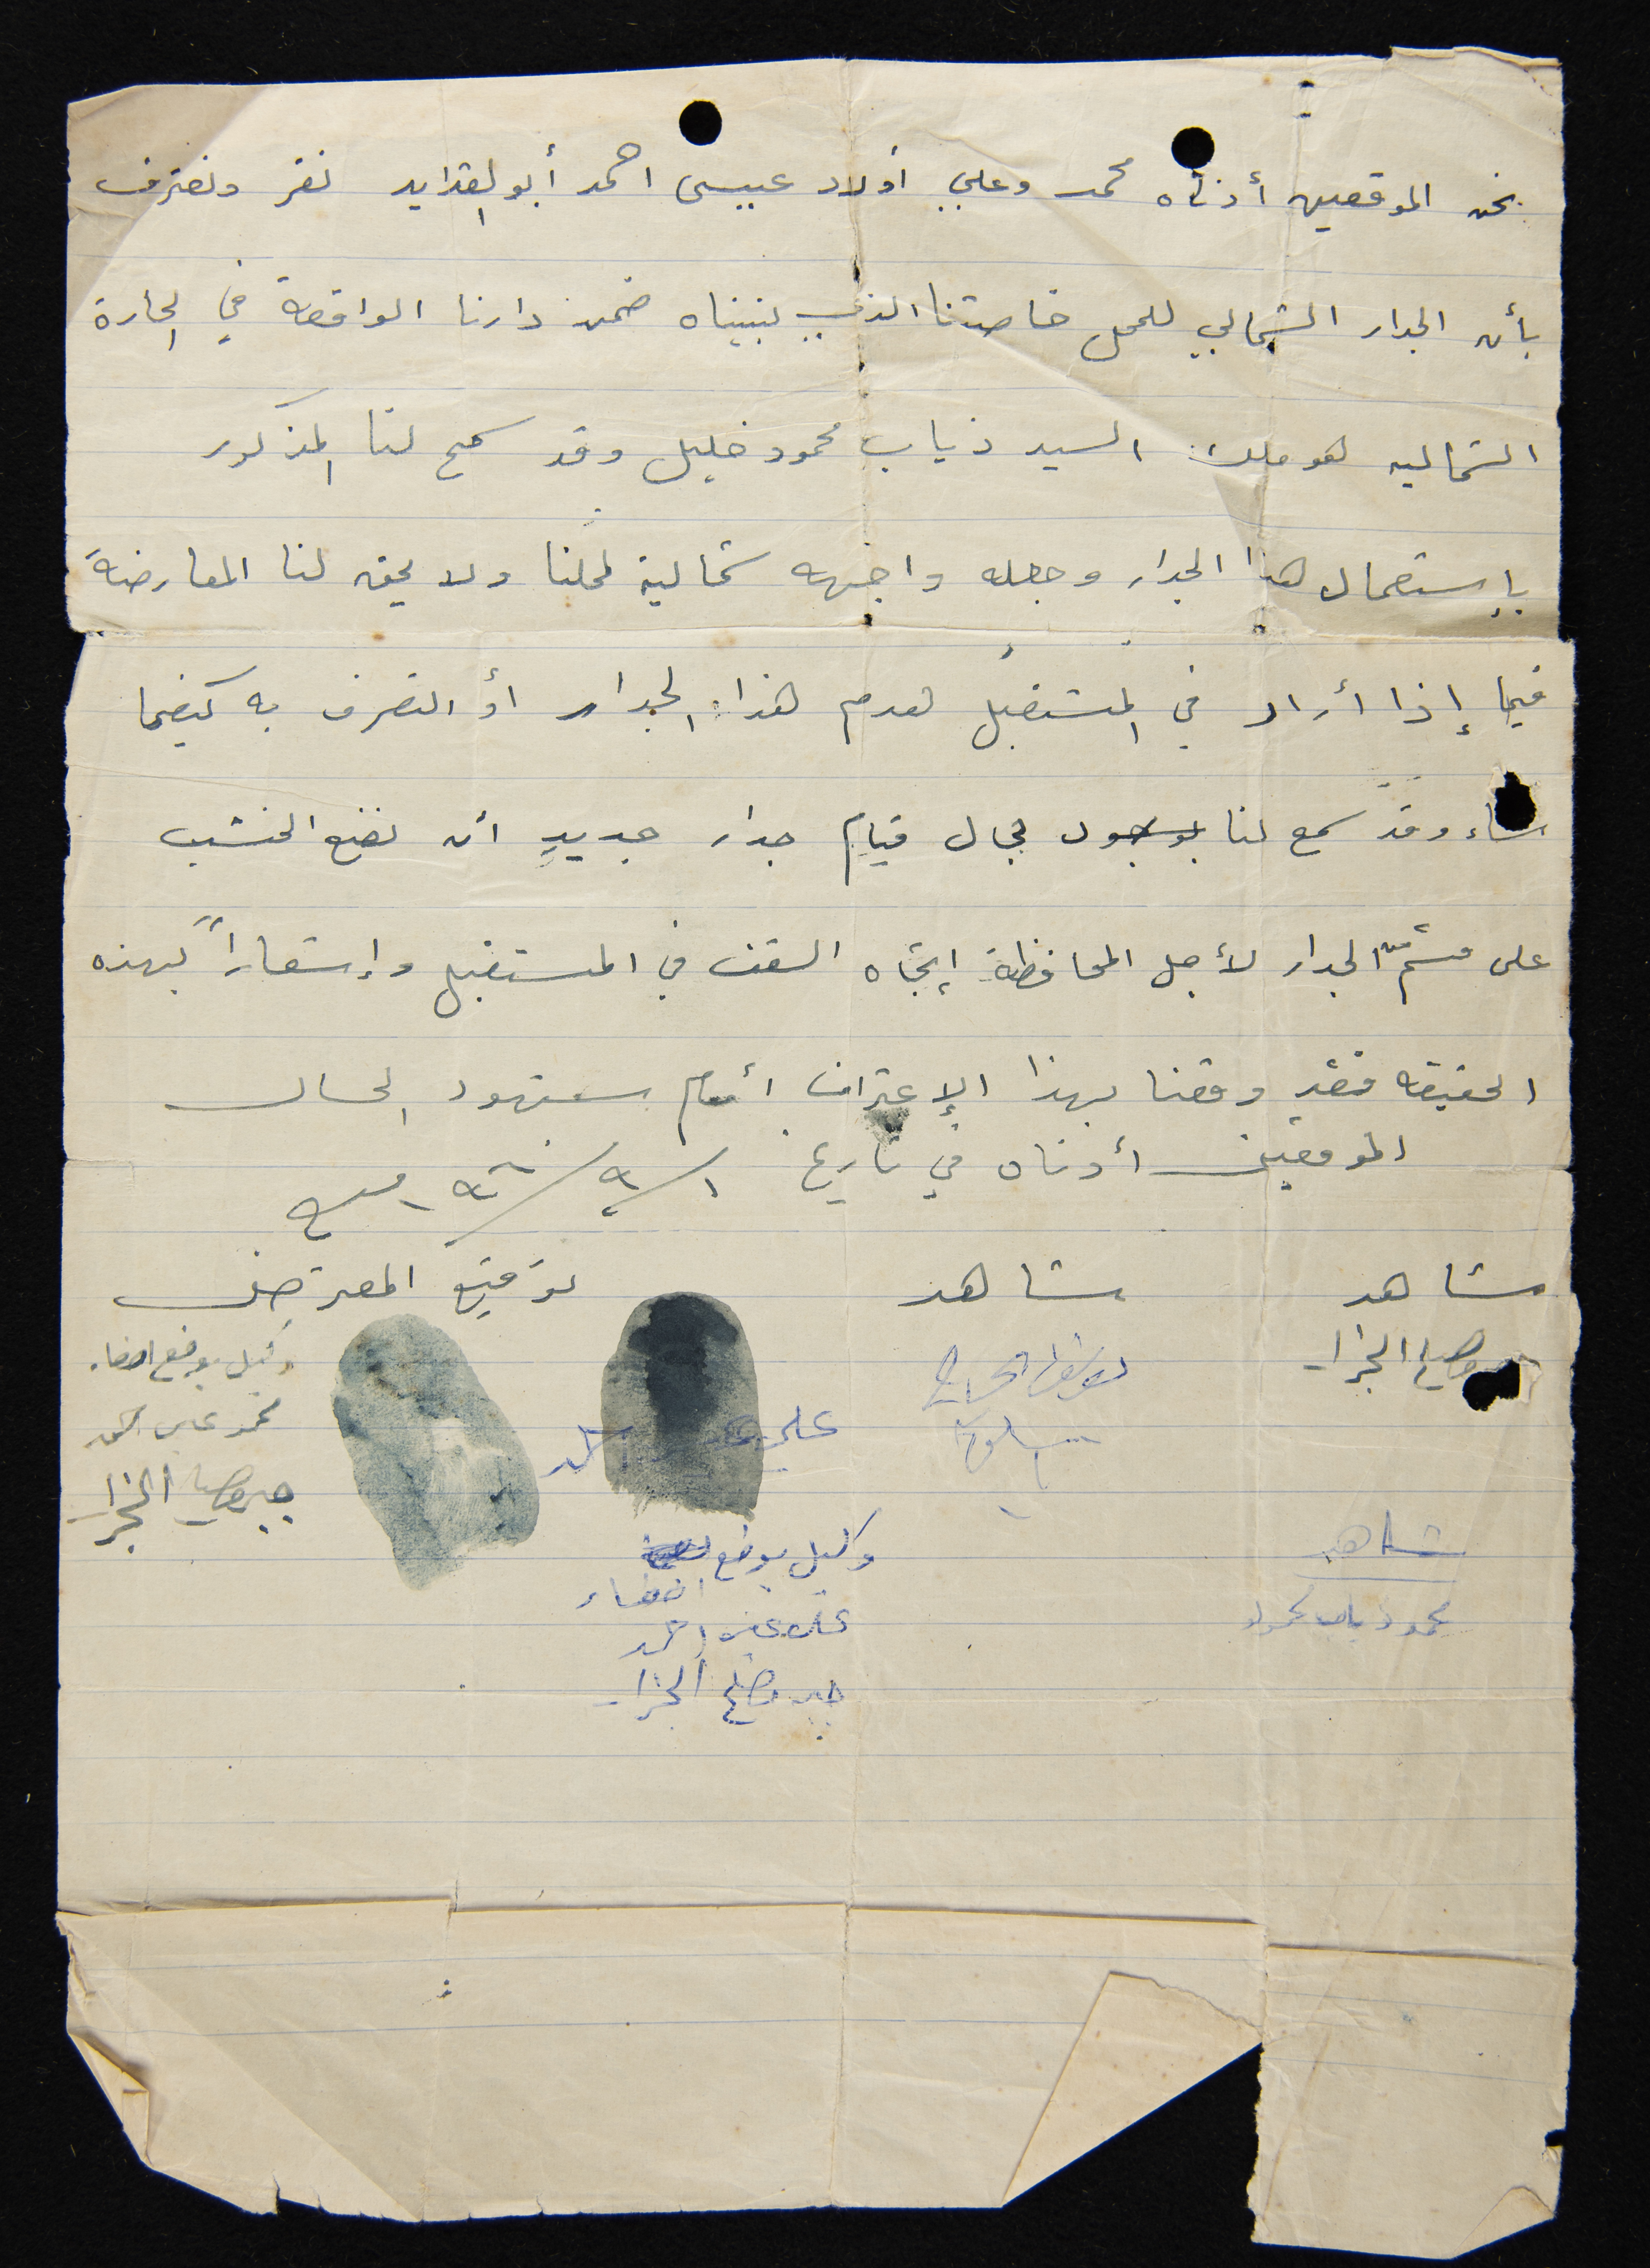 نحن الموقعين أدناه محمد وعلي أولاد عيسى احمد أبو الفدايد نقر ونعترف
بأن الجدار الشمالي للمحل خاصتنا الذي بنيناه ضمن دارنا الواقعة في الحارة
الشماليه هو ملك السيد ذياب محمود خليل وقد سمح لنا المذكور
بإستعمال هذا الجدار وجعله واجهه شمالية لمحلنا ولا يحق لنا المعارضة
فيما إذا أراد في المستقبل هدم هذا الجدار أو التصرف به كيفما
شاء وقد سمح لنا بحال قيام جدار جديدٍ أن نضع الخشب
على الجدار لأجل المحافظة إتجاه السقف في المستقبل وإشعاراً بهذه
الحقيقه فقد وقعنا بهذا الإعتراف أمام شهود الحال
الموقعين أدناه في تاريخ
شاهد شاهد توقيع المعترضين
الجزار
وكيل بوضع امضاء
محمد عيسى احمد
جبر الجزار
علي احمد
شاهد
محمود ذياب محمود
وكيل بوضع
امضاء
علي عيسى احمد
جبر الجزار